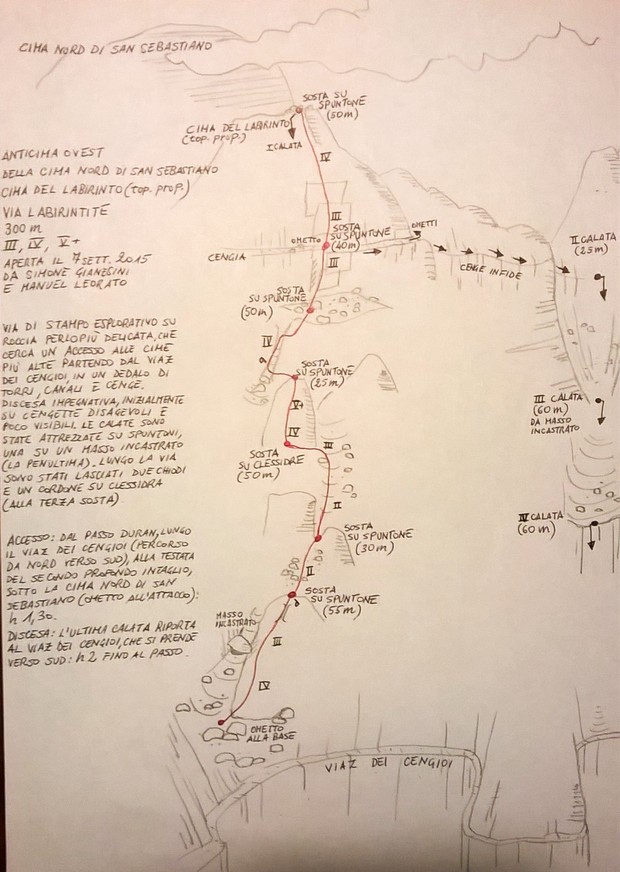 CIMA NORD DI SAN SEBASTIANO
SOSTA SU
SPUNTONE
(50m)
CIMA DEL LABIRINTO
(top. prop.)
I CALATA
IV
ANTICIMA OVEST
DELLA CIMA NORD DI SAN SEBASTIANO
CIMA DEL LABIRINTO (top. prop.)
VIA LABIRINTITE
300 m
III, IV, V+
APERTA IL 7 SETT. 2015
DA SIMONE GIANESINI
E MANUEL LEORATO
III
SOSTA
SU SPUNTONE
(40m)
OMETTO
OMETTI
CENGIA
CENGE INFIDE
II CALATA
(25m)
III
SOSTA
SU SPUNTONE
(50m)
IV
VIA DI STAMPO ESPLORATIVO SU
ROCCIA PERLOPIÙ DELICATA, CHE
CERCA UN ACCESSO ALLE CIME
PIÙ ALTE PARTENDO DAL VIAZ
DEI CENGIOI, IN UN DEDALO DI
TORRI, CANALI E CENGE.
DISCESA IMPEGNATIVA, INIZIALMENTE
SU CENGETTE DISAGEVOLI E
POCO VISIBILI. LE CALATE SONO
STATE ATTREZZATE SU SPUNTONI,
UNA SU UN MASSO INCASTRATO
(LA PENULTIMA). LUNGO LA VIA
SONO STATI LASCIATI DUE CHIODI
E UN CORDONE SU CLESSIDRA
(ALLA TERZA SOSTA)
SOSTA
SU SPUNTONE
(25m)
V+
IV
III CALATA
(60 m)
DA MASSO
INCASTRATO
SOSTA
SU CLESSIDRE
(50m)
III
II
IV CALATA
(60m)
SOSTA
SU SPUNTONE
(30m)
II
ACCESSO: DAL PASSO DURAN, LUNGO
IL VIAZ DEI CENGIOI (PERCORSO
DA NORD VERSO SUD), ALLA TESTATA
DEL SECONDO PROFONDO INTAGLIO,
SOTTO LA CIMA NORD DI SAN
SEBASTIANO (OMETTO ALL'ATTACCO):
h 1,30.
DISCESA: L'ULTIMA CALATA RIPORTA
AL VIAZ DEI CENGIOI, CHE SI PRENDE
VERSO SUD: h 2 FINO AL PASSO.
SOSTA
SU SPUNTONE
(55m)
MASSO
INCASTRATO
III
IV
OMETTO
ALLA BASE
VIAZ DEI CENGIOI